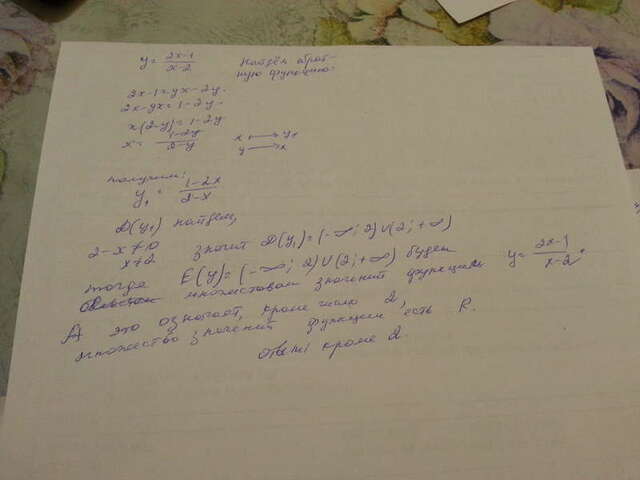 y = \frac{2x-1}{x-2} Найдём обрат-
ную функцию.
2x-1 = yx-2y.
2x-yx = 1-2y.
x(2-y) = 1-2y
x = \frac{1-2y}{2-y} x → y₁
y → x
получим:
y₁ = \frac{1-2x}{2-x}
D(y₁) найдем,
2-x ≠ 0 значит D(y₁) = (-∞; 2) ∪ (2; +∞)
x ≠ 2
тогда E(y) = (-∞; 2) ∪ (2; +∞) будет
множеством значений функции y = \frac{2x-1}{x-2}.
А это означает, кроме числа 2,
множество значений функции есть R.
Ответ: кроме 2.